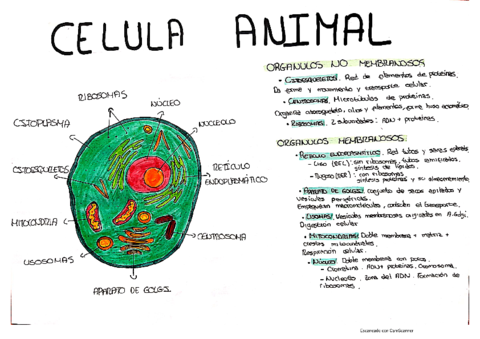 CELULA ANIMAL
RIBOSOMAS
NÚCLEO
NUCLEOLO
CITOPLASMA
CITOESQUELETO
RETÍCULO
ENDOPLASMÁTICO
MITOCONDRIA
CENTROSOMA
LISOSOMAS
APARATO DE GOLGI.
ORGANULOS NO MEMBRANOSOS
• CITOESQUELETO. Red de elementos de proteínas.
Da forma y movimiento y transporte celular.
• CENTROSOMA. Microtúbulos de proteínas.
Organiza citoesqueleto, cilios y flagelos, forma huso acromático
• RIBOSOMAS. 2 subunidades: ARN + proteínas.
ORGANULOS MEMBRANOSOS
• RETÍCULO ENDOPLASMÁTICO. Red tubos y sacos
- Liso (REL): sin ribosomas, tubos
síntesis de lípidos.
- Rugoso (RER): con ribosomas
síntesis proteínas y su almacenamiento
• APARATO DE GOLGI: conjunto de sacos apilados y
vesículas periféricas.
macromoléculas, transporte.
• LISOSOMAS: Vesículas membranosas A. Golgi.
Digestión celular
• MITOCONDRIAS: Doble membrana + matriz +
crestas mitocondriales.
Respiración celular.
• NÚCLEO: Doble membrana con poros.
- Cromatina. ADN + proteínas. Cromosoma.
- Nucleolo. Zona del ADN. Formación de
ribosomas.
Escaneado con CamScanner